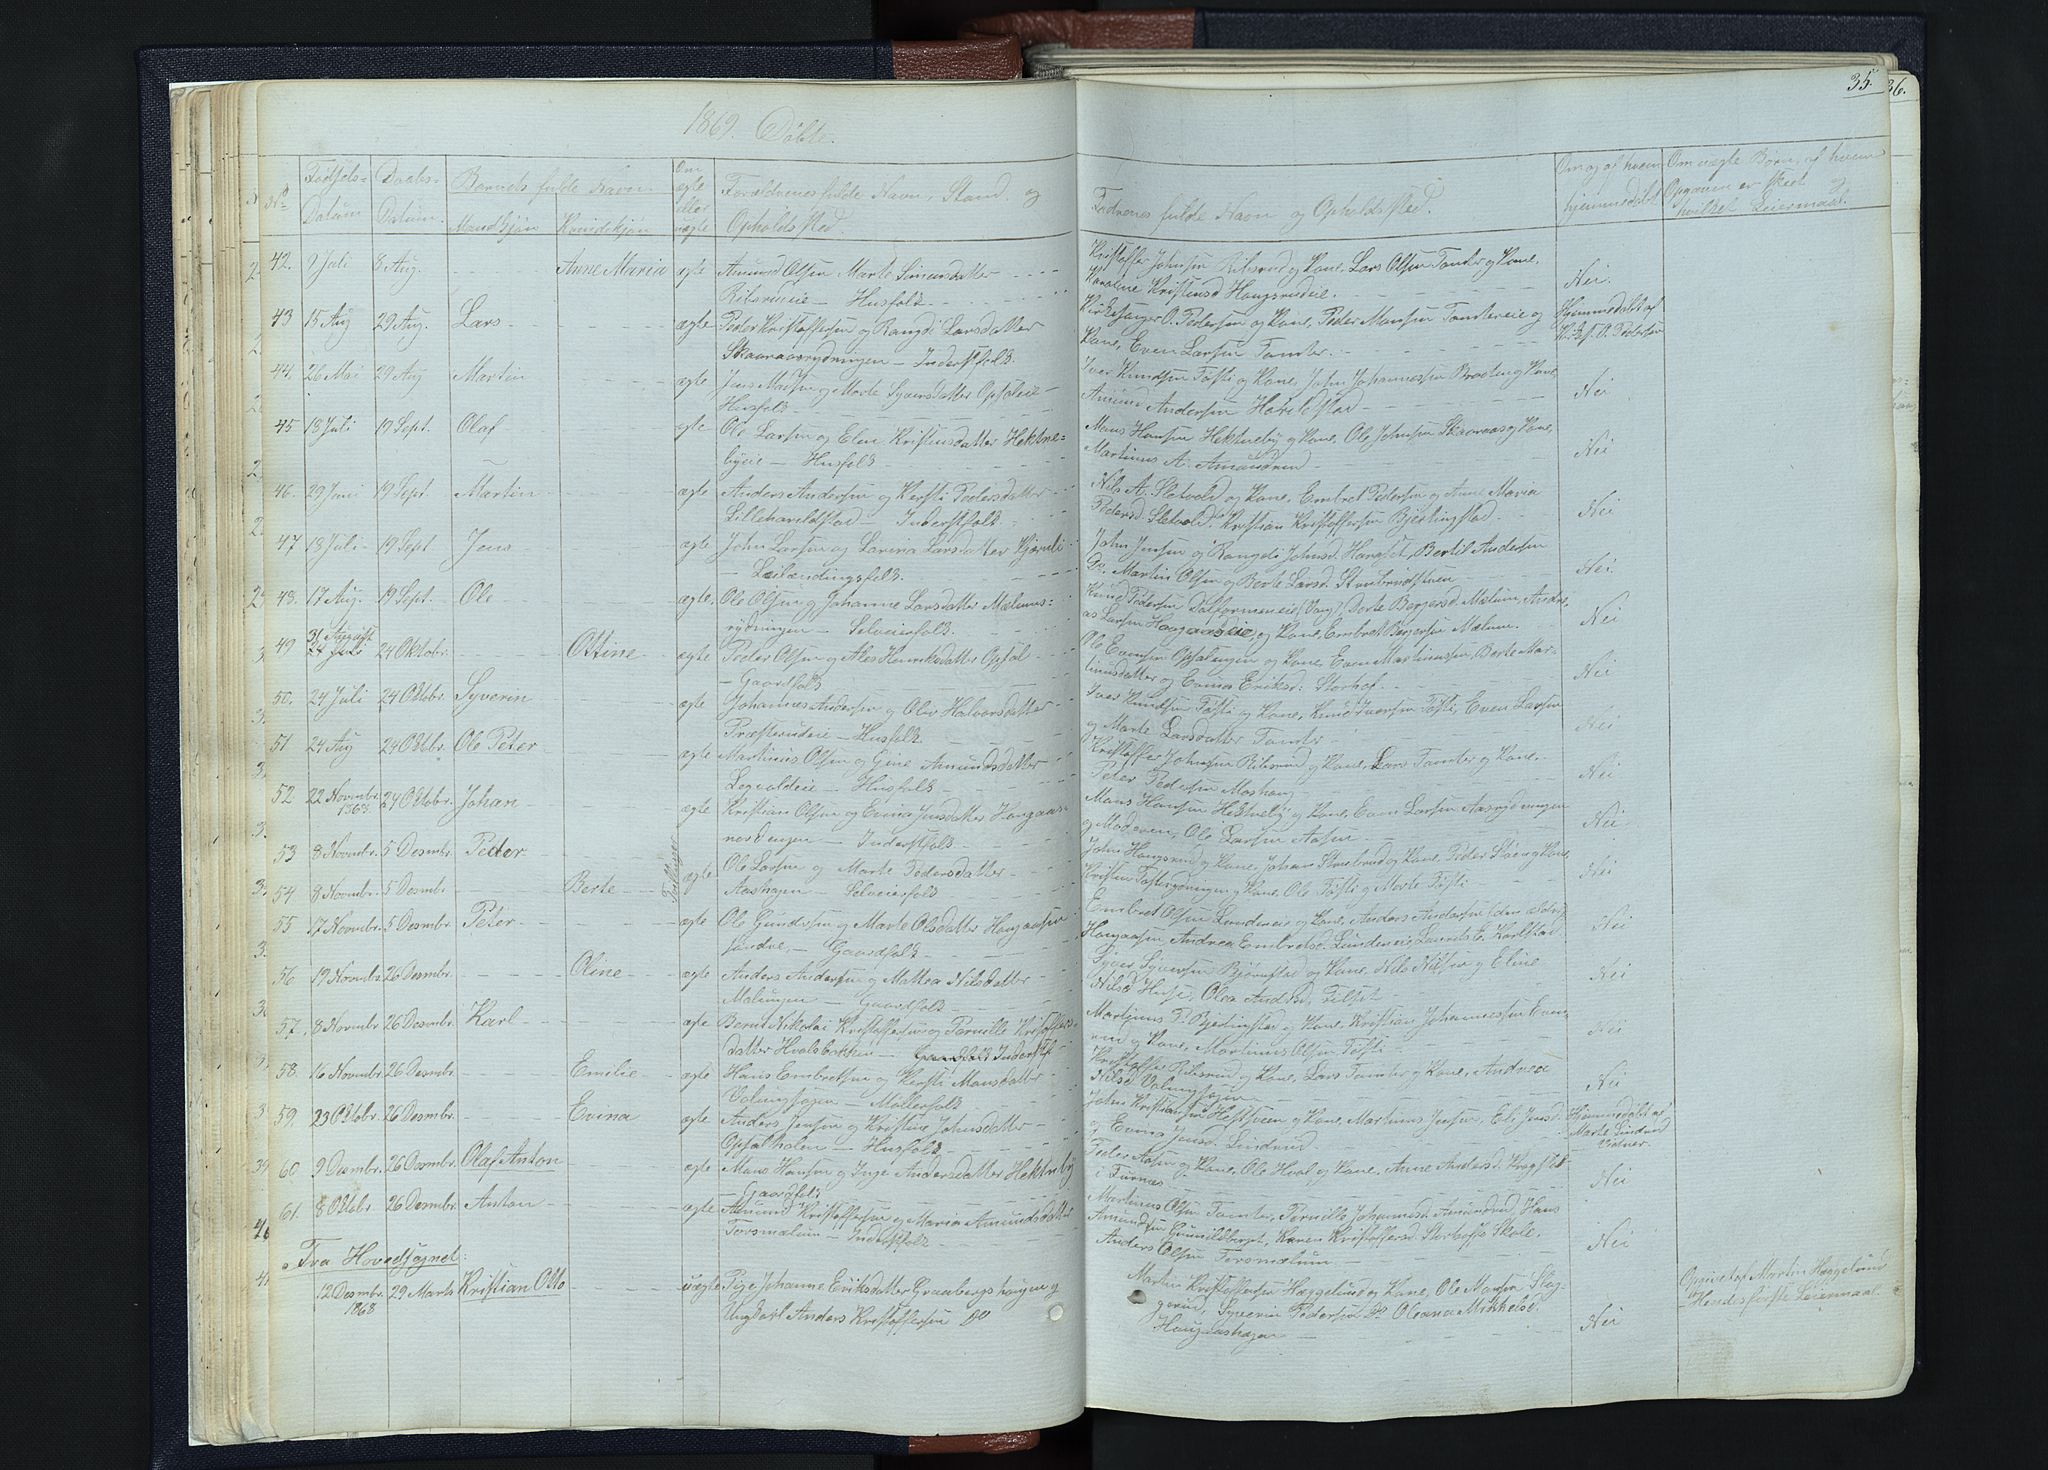 1869. Døbte.
35.
36.
No
Fødsels-
Datum
Daabs-
Datum.
Barnets fulde Navn.
Mandkjøn
Kvindekjøn
Om
ægte
eller
uægte
Forældrenes fulde Navn, Stand og
Opholdssted.
Fadrenes fulde Navn og Opholdssted.
Om og af hvem
hjemmedøbt
Om uægte Børn, af hvem
Opgaven er skeet og
hvilket Leiermaal.
42. 9 Juli 8 Aug. Anne Maria ægte Amund Olsen Marte Simensdatter
Rilsrudeie — Husfolk.
Kristoffer Johnsen Rilsrud og Kone, Lars Olsen Tomter og Kone,
Karoline Kristensd. Haugsrudeie. Nei.
43 15 Aug 29 Aug. Lars ægte Peder Kristoffersen og Rangdi Larsdatter
Skaaraasrydningen — Inderstfolk
Kirkesanger O. Pedersen og Kone, Peder Monsen Tomtereie og
Kone, Even Larsen Tomter.
Hjemmedøbt af
Kirkes. O. Pedersen
44. 26 Mai 29 Aug Martin ægte Jens Madsen og Marte Syversdatter Opsaleie
Husfolk
Iver Knudsen Tøfti og Kone, John Johannessen Braaten og Kone
Andersen Haroldstad Nei
45 18 Juli 19 Sept. Olaf ægte Ole Larsen og Elen Kristensdatter Hektne=
byeie — Husfolk
Mons Hansen Hektneby og Kone, Ole Johnsen Skaaraas og Kone,
Martinus A. Amundrud Nei
46. 29 Juni 19 Sept. Martin ægte Anders Andersen og Kersti Pedersdatter
Lilleharoldstad — Inderstfolk
Nils A. Sletvold og Kone, Embret Pedersen og Anne Maria
Pedersd. Sletvold. Kristian Kristoffersen Bjerkingstad. Nei
47 18 Juli 19 Sept Jens ægte John Larsen og Lavina Larsdatter Kjernli
— Leilændingsfolk.
John Jensen og Rangdi Johnsd. Hangset, Bertil Andersen
Do. Martin Olsen og Berte Larsd. Nei
48. 17 Aug. 19 Sept. Ole ægte. Ole Olsen og Johanne Larsdatter Mælums=
rydningen — Selveierfolk.
Knud Pedersen (Vang) Dorte Bergersd. Mælum, Andre=
as Larsen Haugaaseie, og Kone, Embret Bergersen Mælum. Nei
49 31 August 24 Oktobr. Ottine ægte Peder Olsen og Ales Henriksdatter Opsal
— Gaardfolk
Ole Evensen Opsalengen og Kone, Even Martinussen, Berte Mar=
tinusdatter og Evina Eriksd: Storhof. Nei
50. 24 Juli 24 Oktbr. Syverin ægte Johannes Andersen og Olev Halvorsdatter
Præsterudeie — Husfolk
Iver Knudsen Tøfti og Kone, Knud Iversen Tøfti, Even Larsen
og Marte Larsdatter Tomter Nei
51 24 Aug 24 Oktbr. Ole Peter ægte Martinus Olsen og Gine Amundsdatter
Legvoldeie — Husfolk
Kristoffer Johnsen Rilsrud og Kone, Lars Tomter og Kone,
Peter Pedersen Moshaug Nei
52 22 Novembr. 1868 24 Oktobr. Johan ægte Kristian Olsen og Evina Jensdatter Haugaas=
nordengen — Inderstfolk
Mons Hansen Hektneby og Kone, Even Larsen Aasrydningen
og Moderen, Ole Larsen Aasen Nei
53 8 Novmbr. 5 Desmbr. Peder
54 8 Novmbr. 5 Desmbr Berte
Tvillinger
ægte Ole Larsen og Marte Pedersdatter
Aashagen — Selveierfolk
John Haugsrud og Kone, Johan Stenbrud og Kone, Peder Støen og Kone,
Kristen Tøftirydningen og Kone, Ole Tøfti og Marte Tøfti Nei
55 17 Novmbr. 5 Desmbr. Peter ægte Ole Gundersen og Marte Olsdatter Haugaasen
søndre, — Gaardfolk
Embret Olsen Lundeneie og Kone, Anders Andersen
Haugaasen, Andrea Embretsd. Lundeneie, Laurits E. Karlstad Nei
56 19 Novmbr. 26 Desmbr. Oline ægte Anders Andersen og Mathea Nilsdatter
Malungen — Gaardfolk
Syver Syversen Bjørnstad og Kone, Nils Nilsen og Eline
Nilsd. Huse, Olea Andersd. Filset Nei
57. 8 Novmbr 26 Desmbr. Karl ægte Bernt Nikolai Kristoffersen og Pernille Kristoffers=
datter Hvalsbakken — Gaardfolk Inderstf.
Martinus P. Bjerkingstad og Kone, Kristian Johannessen Even=
rud og Kone, Martinus Olsen Tøfti Nei
58. 16 Novmbr. 26 Desmbr. Emilie ægte Hans Embretsen og Kersti Monsdatter
Valengsagen — Møllerfolk
Kristoffer Rilsrud og Kone, Lars Tomter og Kone, Andrea
Nilsd Valengsagen Nei
59. 23 Oktobr. 26 Desmbr. Evina ægte Anders Jensen og Kristine Johnsdatter
Opsalhalen — Husfolk
John Kristiansen Hestsveen og Kone, Martinus Jensen, Eli Jensd.
og Evine Jensd. Lindrud
Hjemmedøbt af
Marte Lindrud
60 9 Desmbr. 26 Desmbr. Olaf Anton ægte Mons Hansen og Inge Andersdatter Hektneby
— Gaardfolk
Peder Aasen og Kone, Ole Hval og Kone, Anne Andersd. Kragstad
i Furnes Nei
61. 8 Oktobr. 26 Desmbr. Anton ægte Amund Kristoffersen og Maria Amundsdatter
Torsmælum — Inderstfolk
Martinus Olsen Tomter, Pernille Johannesd. Amundrud, Hans
Amundsen Gunnildberget, Karen Kristoffersd. Storhofs Skole.
Anders Olsen Torsmælum Nei
Fra Hovedsognet:
12 Desmbr. 1868 29 Marts Kristian Otto uægte Pige Johanne Eriksdatter Graabergshaugen og
Ungkarl Anders Kristoffersen Do
Martin Kristoffersen Hæggelund og Kone, Ole Monsen Slag=
gerud, Syverin Pedersen Do. Oleana Mikkelsd.
Haugaashagen Nei
Opgivet af Martin Hæggelund
Hendes første Leiermaal.